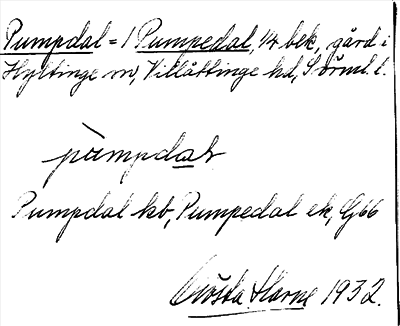 Pumpdal = 1 Pumpedal, 1/4 bek, gård i
Hyltinge sn, Villåttinge hd, Sörml. l.
pumpdal
Pumpdal kb, Pumpedal ek, G66
Gösta Harne 1932.